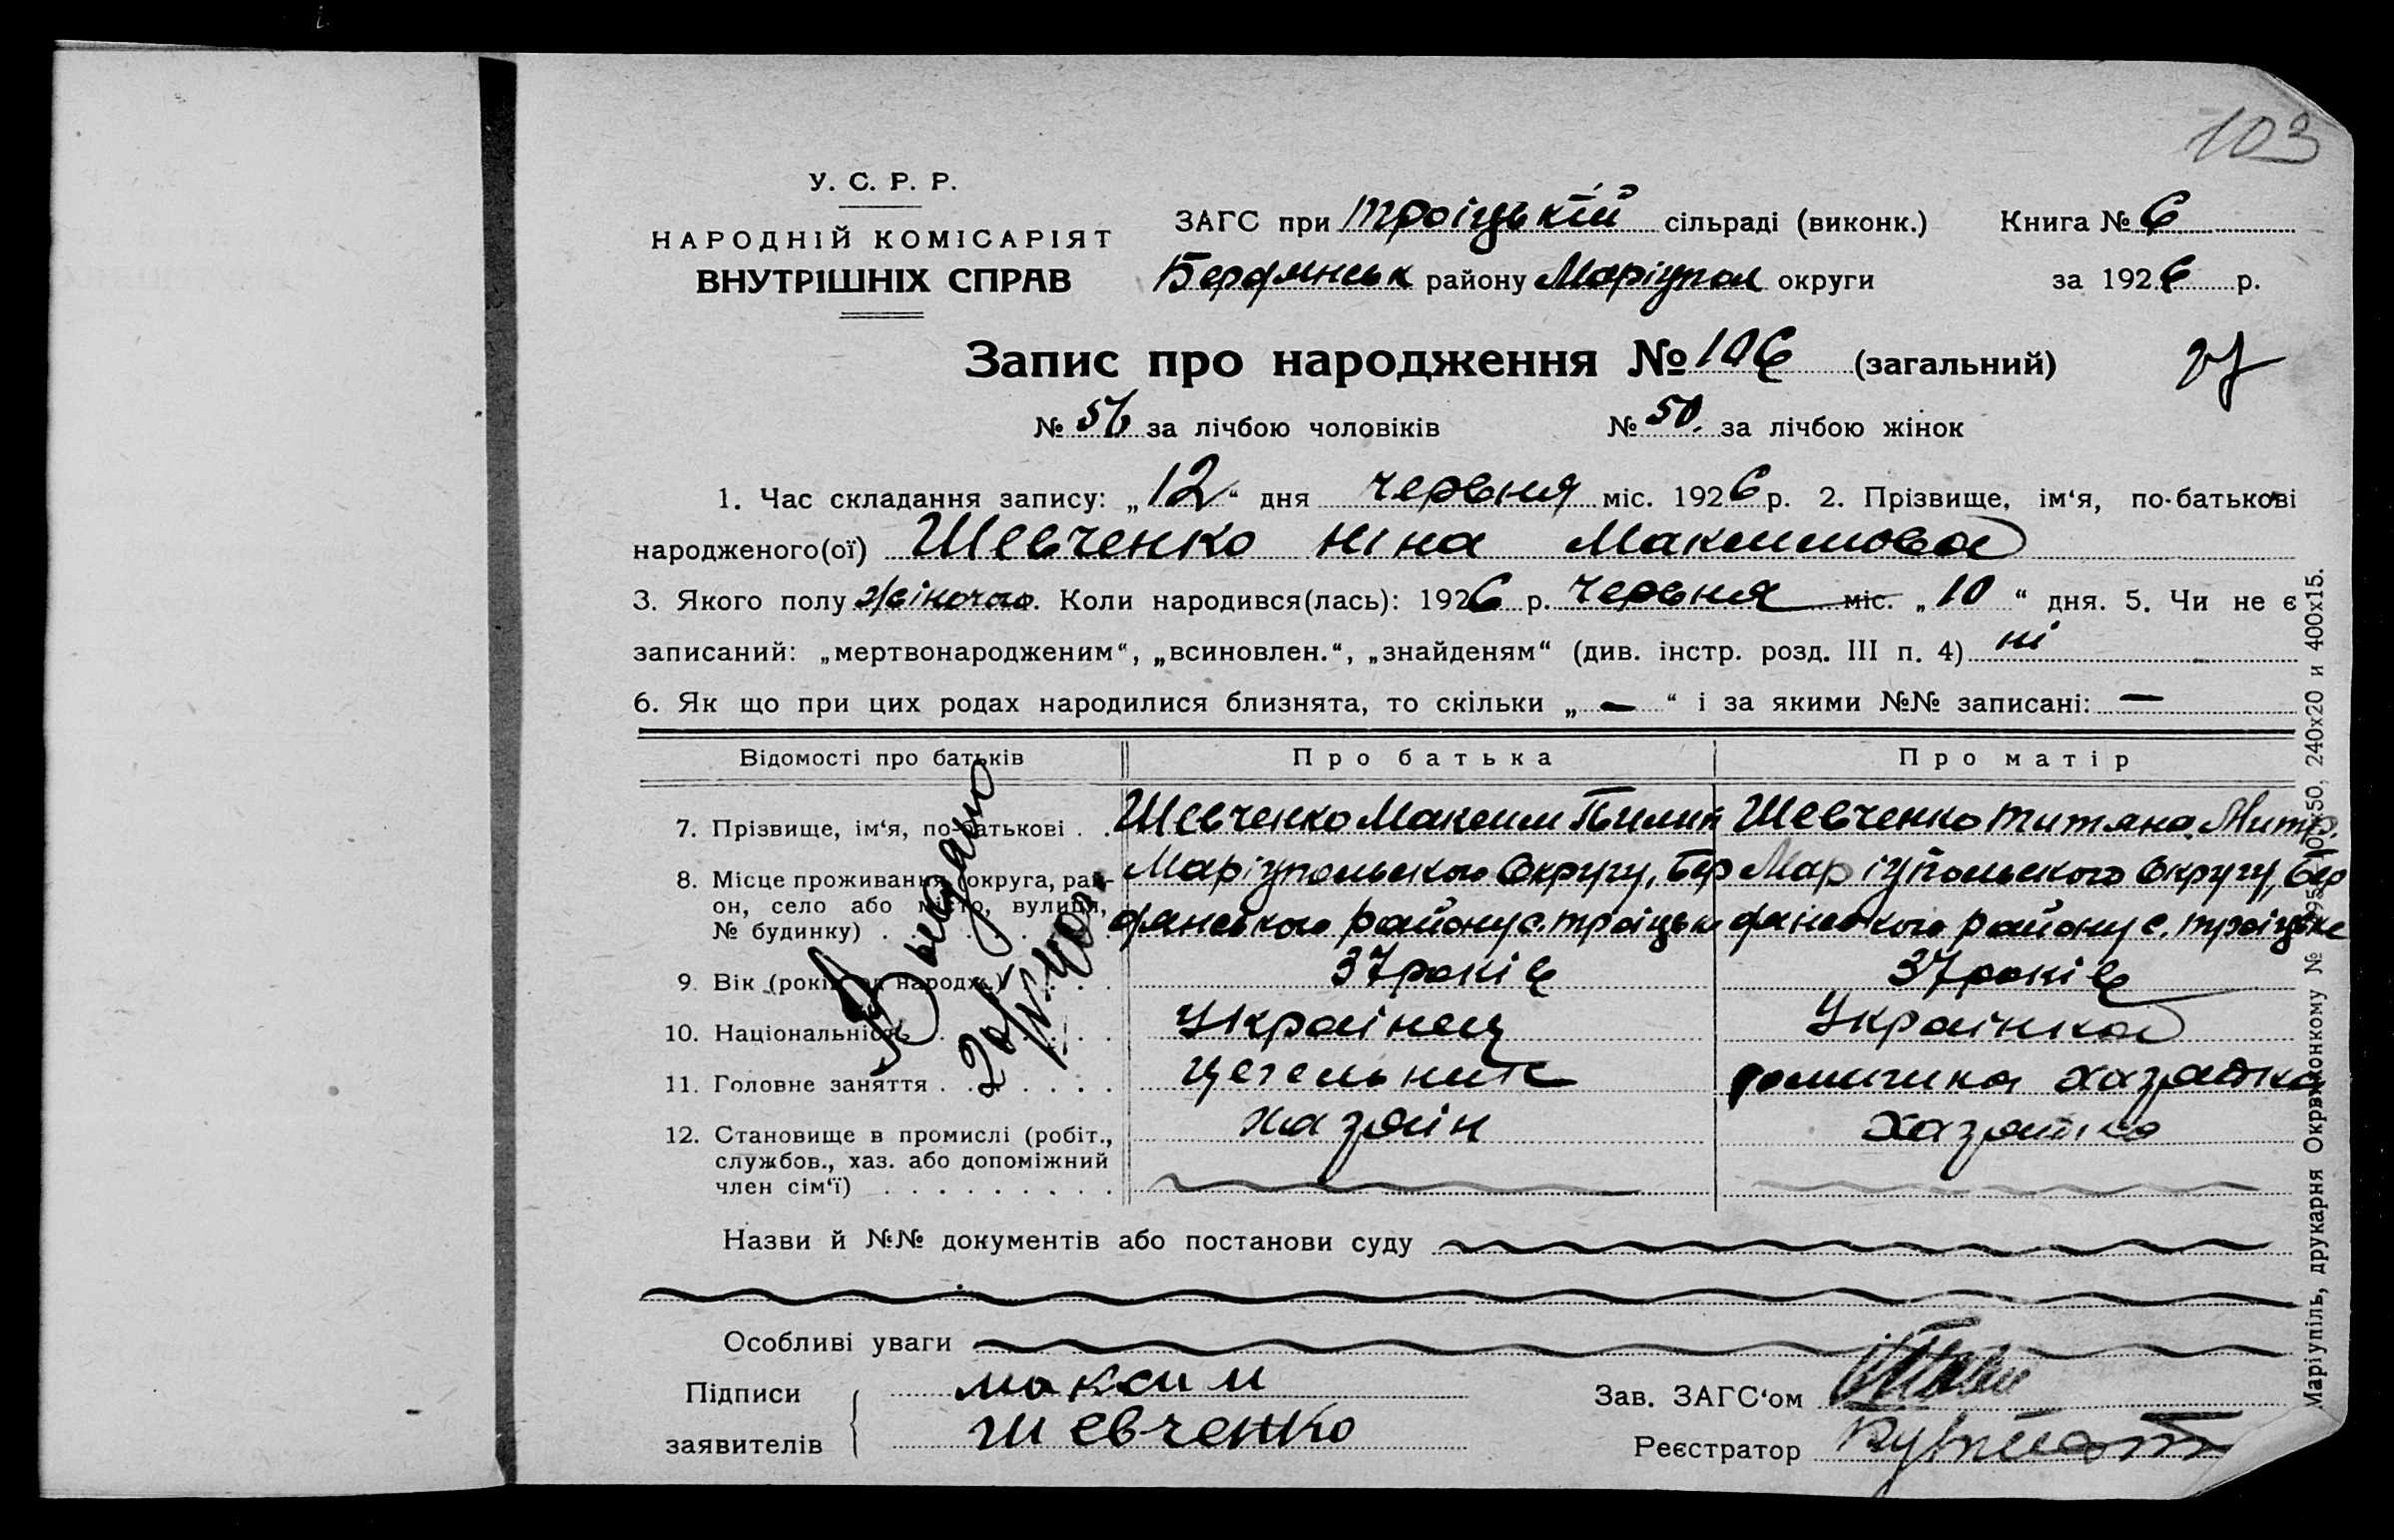 103
У. С. Р. Р.
НАРОДНІЙ КОМІСАРІЯТ
ВНУТРІШНІХ СПРАВ
ЗАГС при Троіцькій сільраді (виконк.) Книга № 6
Бердянськ району Маріупол округи за 1926 р.
Запис про народження № 106 (загальний)
№ 56 за лічбою чоловіків № 50. за лічбою жінок
1. Час складання запису: „12“ дня червня міс. 1926 р. 2. Прізвище, ім‘я, по-батькові
народженого(ої) Шевченко Ніна Максимова
3. Якого полу жіночого. Коли народився(лась): 1926 р. Червня міс. „10“ дня. 5. Чи не є
записаний: „мертвонародженим“, „всиновлен.“, „знайденям“ (див. інстр. розд. III п. 4) ні
6. Як що при цих родах народилися близнята, то скільки „ — “ і за якими №№ записані: —
Відомості про батьків Про батька Про матір
7. Прізвище, ім‘я, по-батькові . . Шевченко Максим Пилип Шевченко Титяна Митр.
8. Місце проживання (округа, рай- Маріупольского Округу, Бер Маріупольского Округу, Бер
он, село або місто, вулиця, дянського району с. троіцьке дянського району с. троіцьке
№ будинку)
9. Вік (років від народж.) 37 років 37 років
10. Національність Украінец Украінка
11. Головне заняття цегельник домашна хазяйка
12. Становище в промислі (робіт., хазяін хазяйка
службов., хаз. або допоміжний
член сім‘ї)
Видано
Назви й №№ документів або постанови суду
Особливі уваги
Підписи максим Зав. ЗАГС‘ом
заявителів шевченко Реєстратор
Маріупіль, друкарня Окрвиконкому № 240х20 и 400х15.